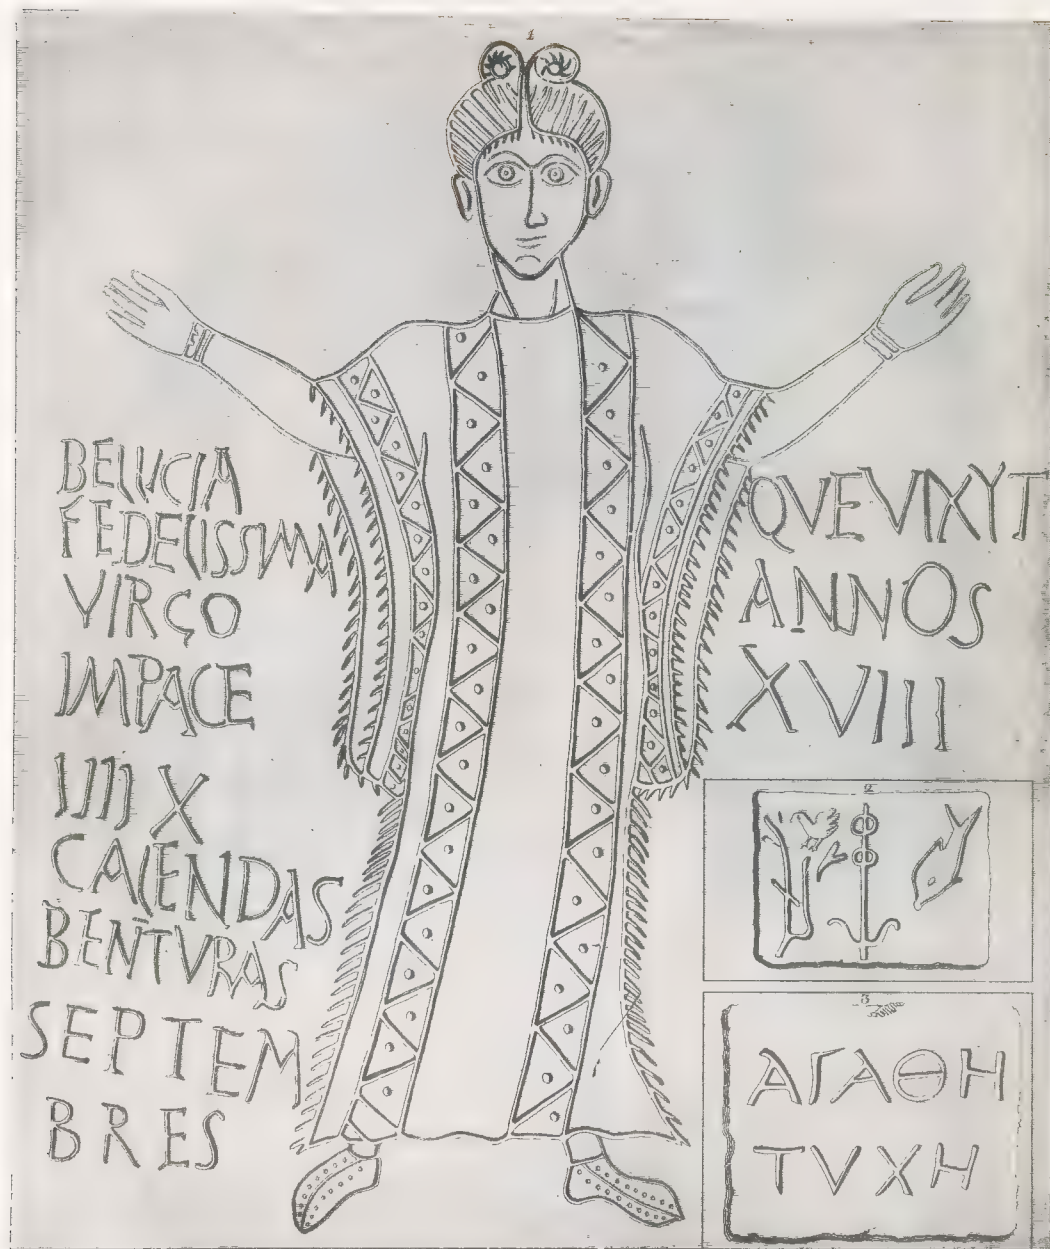 1
BELLICIA
FEDELISSIMA
VIRGO
IMPACE
IIII X
CALENDAS
BENTVRAS
SEPTEM
BRES
QVE VIXYT
ANNOS
XVIII
2
3
ΑΓΑΘΗ
ΤVΧΗ